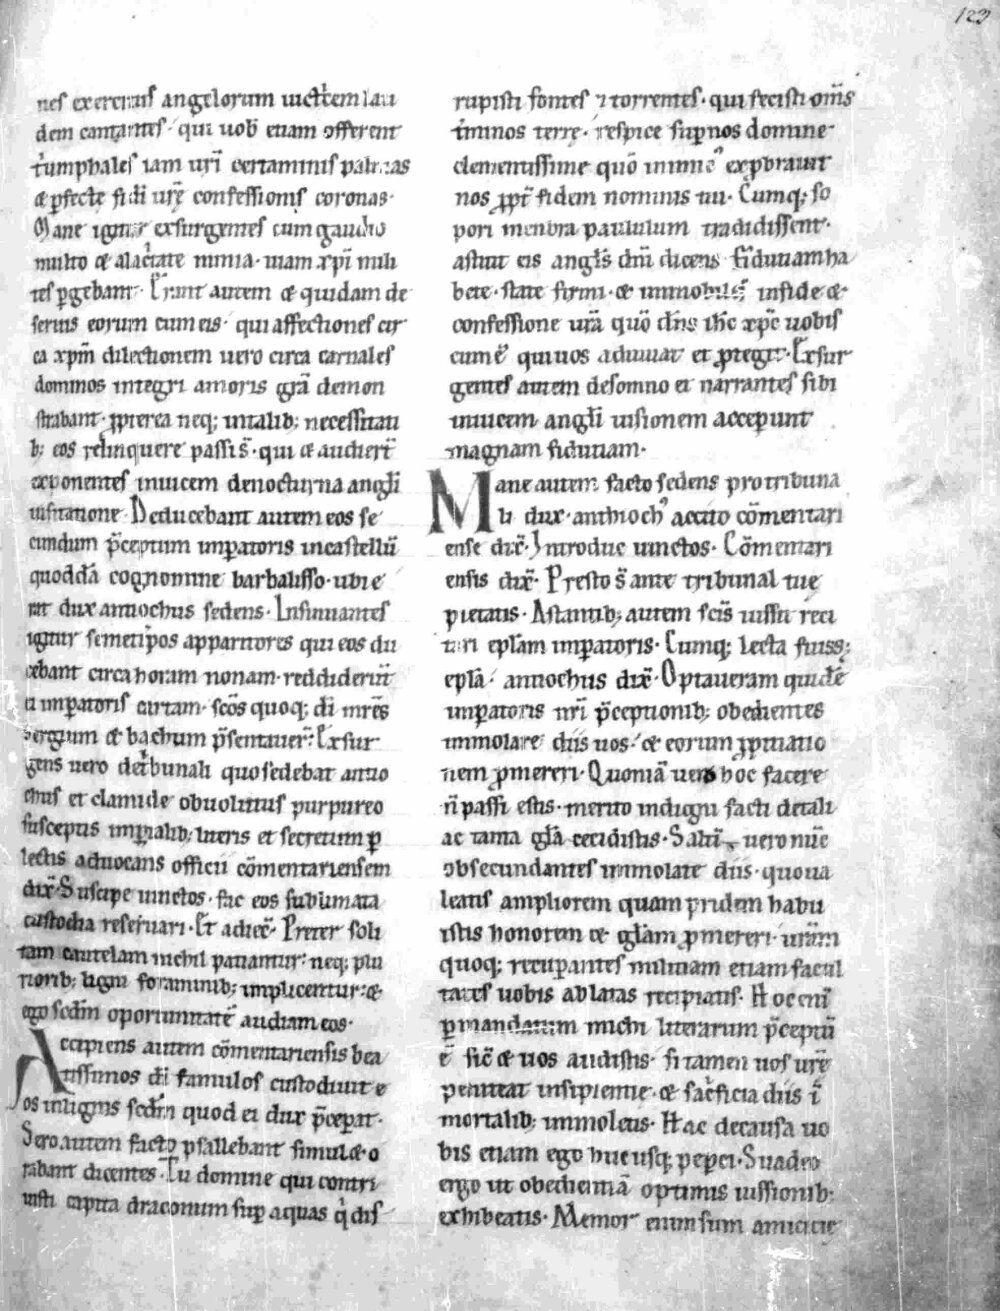 123
nes exercitus angelorum uictorem lau
dem cantantes· qui uob̄ etiam offerent
t̓umphales iam ur̄i certaminis palmas
& ꝑfectę fidi ur̄ę confessionis coronas·
Mane igitur exsurgentes cum gaudio
multo & alacritate nimia· uiam xp̄i mili
tes ꝑgebant· Erant autem & quidam de
seruis eorum cum eis· qui affectiones cir
ca xp̄m dilectionem uero circa carnales
dominos integri amoris gr̄a demon
strabant· ꝓpterea neq; in talib; necessitati
b; eos relinquere passi s̄· qui & audiert̄
exponentes inuicem de nocturna angl̄i
uisitatione· Deducebant autem eos se
cundum p̄ceptum imꝑatoris in castellū
quoddā cognomine barbalisso· ubi e
rat dux antiochus sedens· Insinuantes
igitur semetipos apparitores qui eos du
cebant circa horam nonam· reddiderūt
ei imꝑatoris cartam· sc̄os quoq; di mr̄es
sergium & bachum p̄sentauer̄· Exsur
gens uero de t̓bunali quo sedebat antio
chus et clamide obuolutus purpureo
susceptis imꝑialib; litteris et secretim ꝑ
lectis aduocans officii cōmentariensem
dix̄· Suscipe uinctos· fac eos sublimata
custodia reseruari· Et adiec̄· Preter soli
tam cautelam nichil patiantur· neq; plu
riorib; ligni foraminib; implicentur· &
ego sedm̄ oportunitatē audiam eos·
Accipiens autem cōmentariensis bea
tissimos di famulos custodiuit e
os in lignis sedm̄ quod ei dux p̄ceꝑat·
Sero autem facto psallebant simul & o
rabant dicentes· Tu domine qui contri
uisti capita draconum suꝑ aquas q̓ dis
rupisti fontes ⁊ torrentes· qui fecisti om̄s
t̓minos terrę· respice suꝑ nos domine
clementissime quō inimic᾽ exꝓbrauit
nos ꝓpt̓ fidem nominis tui· Cumq; so
pori menbra paululum tradidissent·
astitit eis angl̄s dn̄i dicens fiduciam ha
bete· state firmi· & inmobiles in fide &
confessione ur̄a quō dn̄s ihc xpc uobis
cum ē qui uos adiuuat et ꝓtegit· Exsur
gentes autem de somno et narrantes sibi
inuicem angl̄i uisionem acceꝑunt
magnam fiduciam·
Mane autem facto sedens pro tribuna
li dux· antioch᾽ accito cōmentari
ense dix̄· Introduc uinctos· Cōmentari
ensis dix̄· Presto s̄ ante tribunal tuę
pietatis· Astantib; autem scis̄ iussit reci
tari epl̄am imꝑatoris· Cumq; lecta fuiss;
epl̄a· antiochus dix̄· Optaueram quidē
imꝑatoris nr̄i p̄ceptionib; obedientes
immolare diis uos· & eorum ꝓpitiatio
nem ꝓmereri· Quoniā uero hoc facere
n̄ passi estis· merito indigni facti de tali
ac tanta gl̄a cecidistis· uero nūc
obsecundantes immolate diis· quo ua
leatis ampliorem quam pridem habu
istis honorem & gl̄am ꝓmereri· uram̄
quoq; recuꝑantes militiam etiam facul
tates uobis ablatas recipiatis· Hoc eni̅
ꝑ mandatum michi litterarum p̄ceptū
ē sic̄ & uos audistis· si tamen uos ur̄e
peniteat insipientie· & sac̓ficia diis i̅
mortalib; immoletis· Hac de causa uo
bis etiam ego hucusq; peꝑci· Suadeo
ergo ut obedientiā optimis iussionib;
exhibeatis· Memor enim sum amicicie